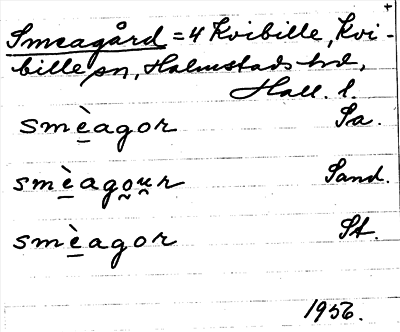 +
Smeagård = 4 Kvibille, Kvi-
bille sn, Halmstads hd,
Hall. l.
smè̱agor Sa.
smè̱ago̰ṵr Sand.
smè̱agor St.
1956.